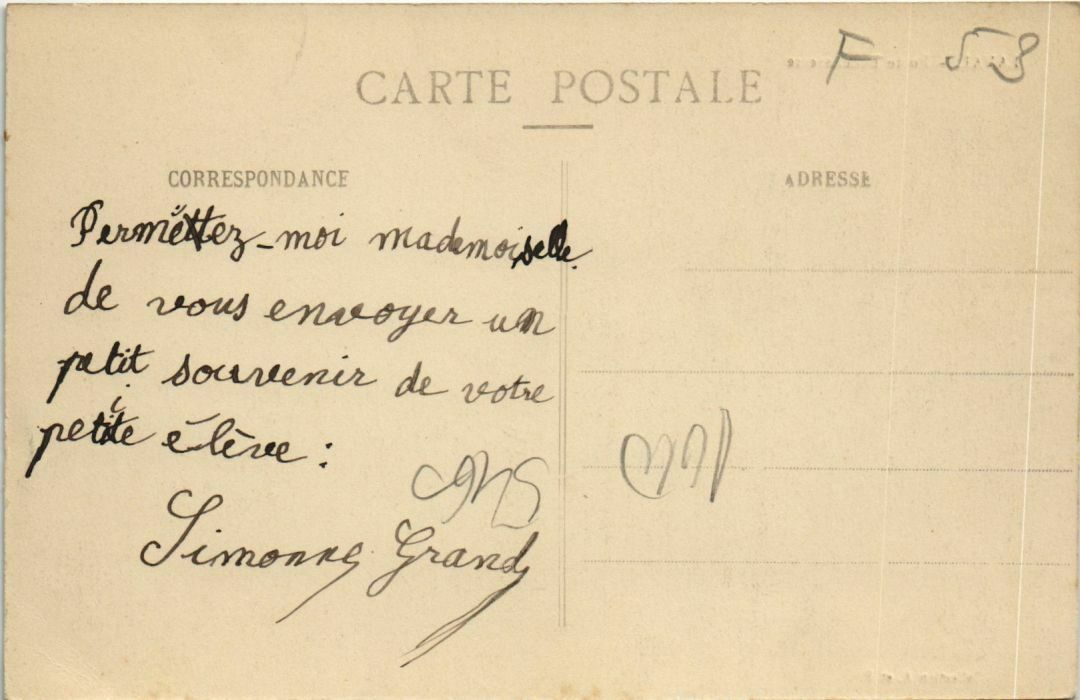 CARTE POSTALE
CORRESPONDANCE
ADRESSE
F 53
Permettez-moi mademoiselle.
de vous envoyer un
petit souvenir de votre
petite élève :
Simonne Grand